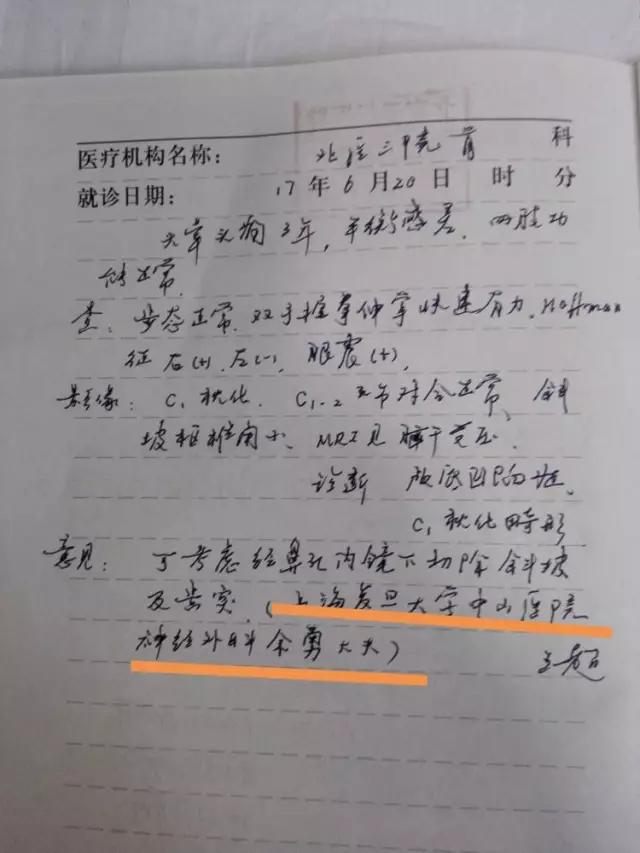 医疗机构名称： 北医三院 骨 科
就诊日期： 17 年 6 月 20 日 时 分
头晕头痛3年，平衡感差，四肢功
能正常。
查：步态正常，双手握拳伸掌快速有力，Hoffman
征 右(+)，左(-)，眼震(+)，
影像：C₁枕化，C₁₋₂关节对合正常，斜
坡枢椎角小，MRI见脑干受压。
诊断 颅底凹陷症。
C₁枕化畸形
意见：可考虑经鼻孔内镜下切除斜坡
及齿突（上海复旦大学中山医院
神经外科余勇大夫）